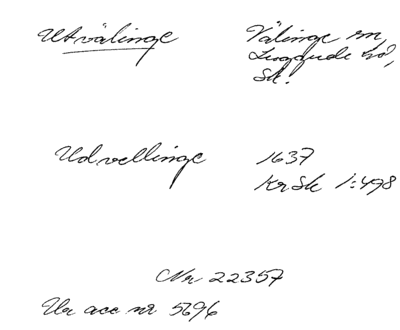 Utvälinge Välinge sn,
Luggude hd,
Sk.
Udvellinge 1637
KrSk 1:498
Nr 22357
Ur acc nr 5696